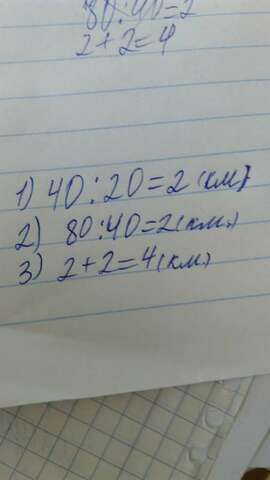 80:40=2
2+2=4
1) 40:20=2(км)
2) 80:40=2(км.)
3) 2+2=4(км.)